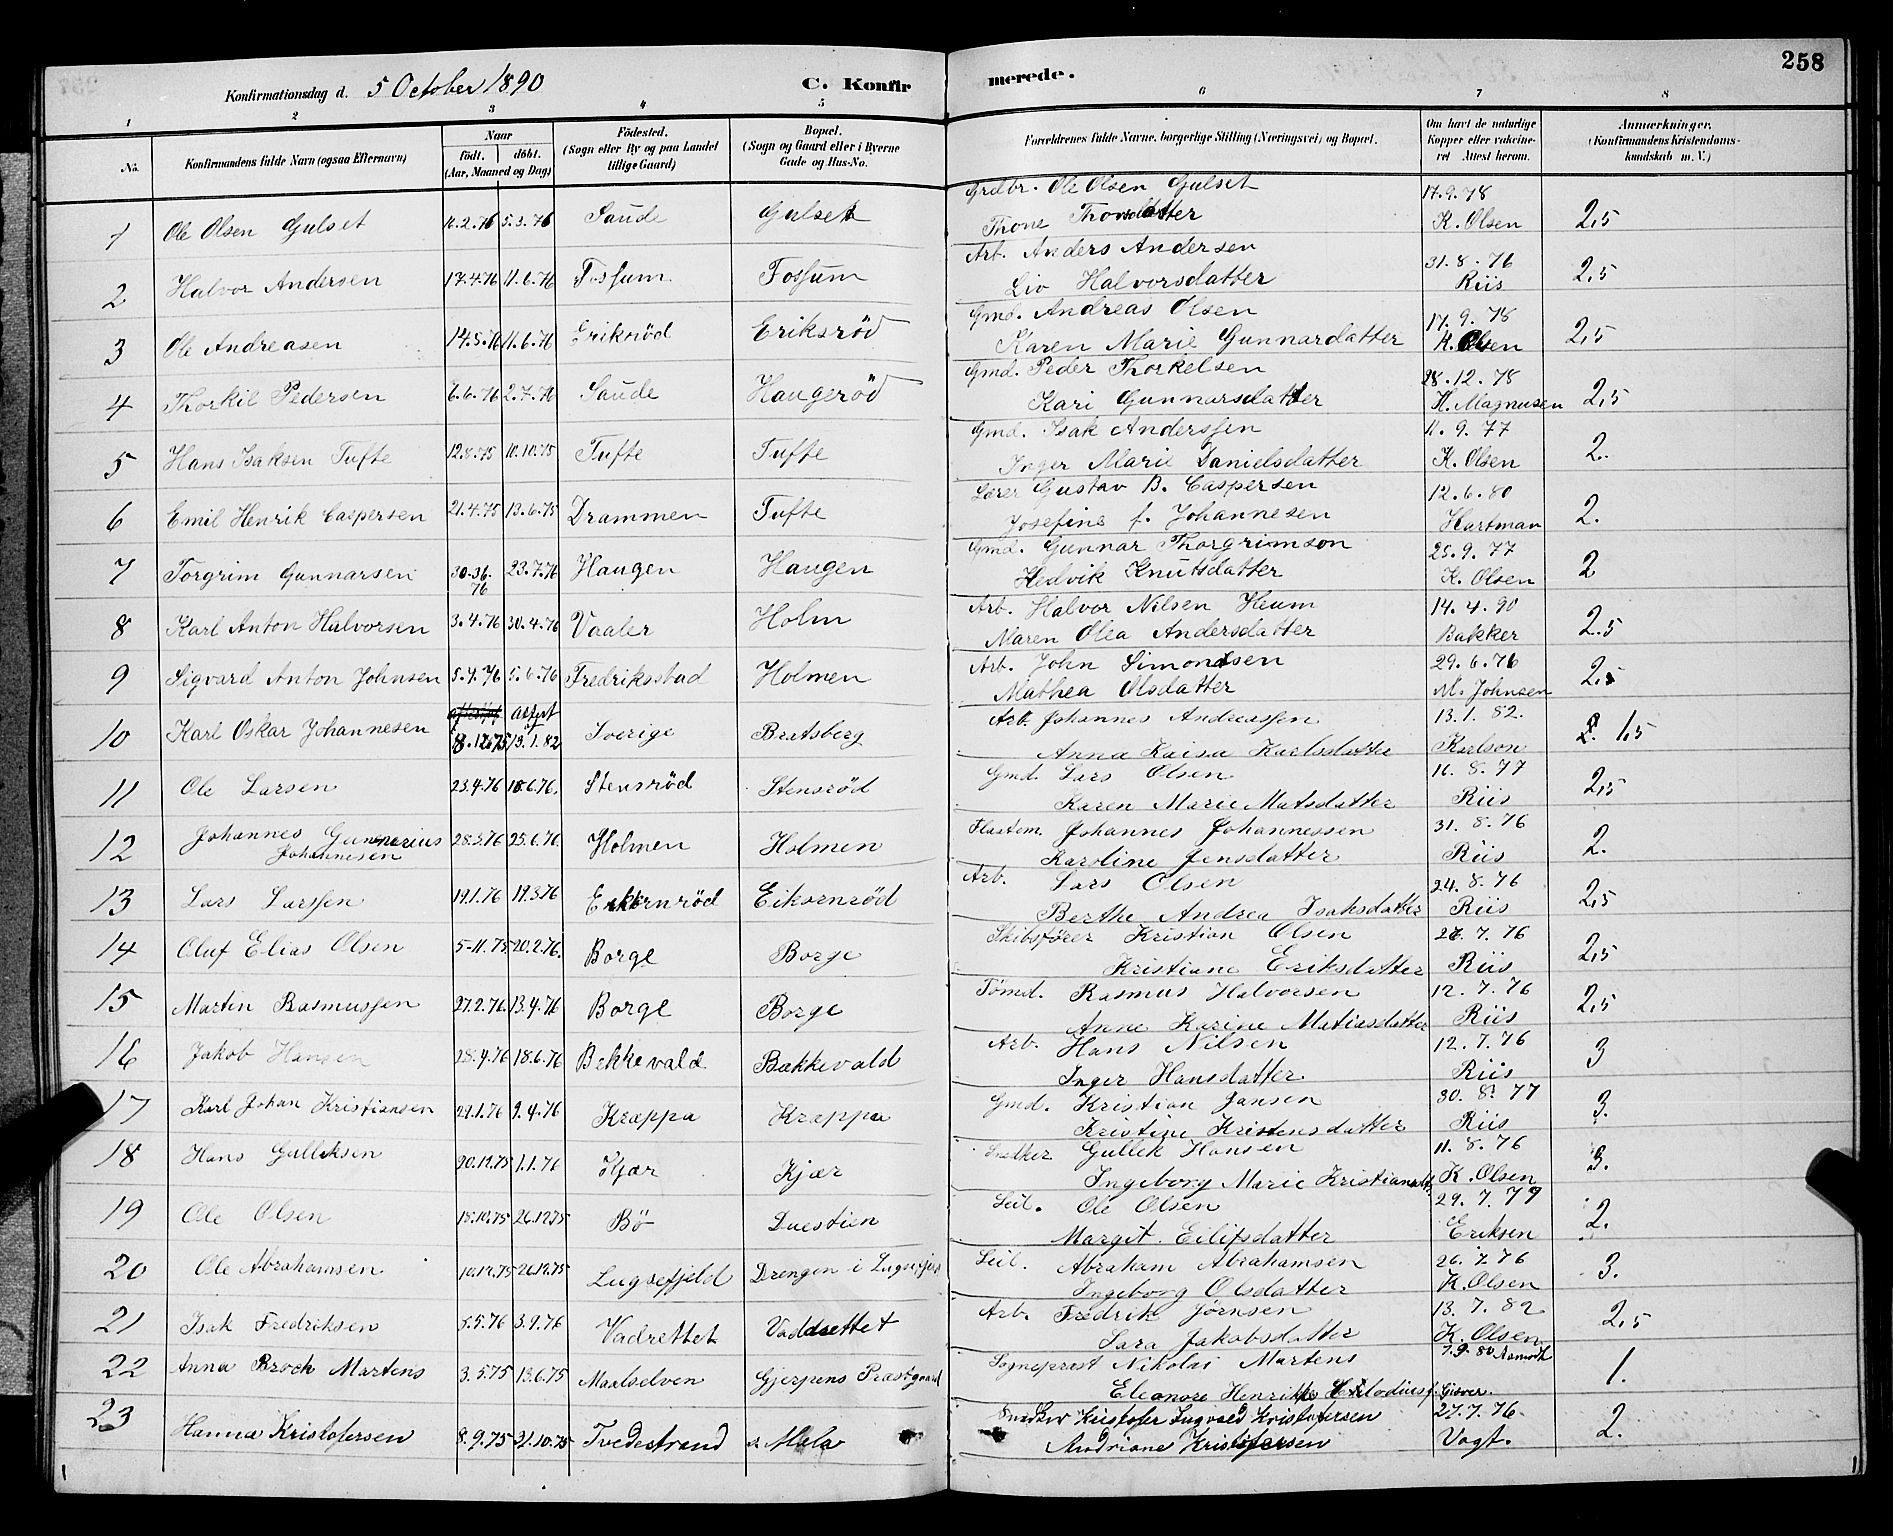 258
Konfirmationsdag d. 5 October 1890 C. Konfirmerede.
1 2 3 4 5 6 7 8
No. Konfirmandens fulde Navn (ogsaa Efternavn) Naar født. døbt. (Aar, Maaned og Dag) Fødested. (Sogn eller By og paa Landet tillige Gaard) Bopæl. (Sogn og Gaard eller i Byerne Gade og Hus-No. Forældrenes fulde Navne, borgerlige Stilling (Næringsvei) og Bopæl. Om havt de naturlige Kopper eller vakcineret Attest herom. Anmærkninger. (Konfirmandens Kristendomskundskab m. V.)
1 Ole Olsen Gulset 16.2.76 5.3.76 Saude Gulset Grdbr. Ole Olsen Gulset 17.9.78
Trone K. Olsen 2,5
2 Halvor Andersen 17.4.76 11.6.76 Fossum Fossum Arb. Anders Andersen 31.8.76
Liv Halvorsdatter Riis 2,5
3 Ole Andreasen 14.5.76 11.6.76 Eriksröd Eriksröd Gmd. Andreas Olsen 17.9.78
Karen Marie Gunnardatter K. Olsen 2,5
4 Thorkil Pedersen 6.6.76 2.7.76 Saude Haugeröd Gmd. Peder Thorkelsen 28.12.78
Kari Gunnarsdatter H. Magnusen 2,5
5 Hans Isaksen Tufte 12.8.75 10.10.75 Tufte Tufte Gmd. Isak Anderssen 11.9.77
Inger Marie Danielsdatter K. Olsen 2.
6 Emil Henrik Caspersen 21.4.75 13.6.75 Drammen Tufte Lærer Gustav B. Caspersen 12.6.80
Josefine f. Johannesen Hartman 2.
7 Torgrim Gunnarsen 30.36.76 23.7.76 Haugen Haugen Gmd. Gunnar Thorgrimson 25.9.77
Hedvik Knutsdatter K. Olsen 2
8 Karl Anton Halvorsen 3.4.76 30.4.76 Vaaler Holm Arb. Halvor Nilsen Heum 14.4.90
Maren Olea Andersdatter Bakker 2.5
9 Sigvard Anton Johnsen 5.4.76 5.6.76 Fredriksstad Holmen Arb. John Simondsen 29.6.76
Mathea Olsdatter M. Johnsen 2.5
10 Karl Oskar Johannesen 8.12.75 13.1.82 Sverige Bratsberg Arb. Johannes Andreassen 13.1.82.
Anna Kaisa Karlsdatter Karlson 1,5
11 Ole Larsen 23.4.76 18.6.76. Stensröd Stensröd Gmd. Lars Olsen 16.8.77
Karen Marie Matsdatter Riis 2,5
12 Johannes Gunnerius Johannesen 28.3.76 25.6.76 Holmen Holmen Flaatem. Johannes Johannessen 31.8.76
Karoline Jensdatter Riis 2.
13 Lars Larssen 19.1.76 19.3.76 Eikornröd Eikornröd Arb. Lars Olsen 24.8.76
Berthe Andrea Isaksdatter Riis 2,5
14 Oluf Elias Olsen 5.11.75 20.2.76. Borge Borge Skibsfører Kristian Olsen 7.76
Kristiane Eriksdatter Riis 2,5
15 Martin Rasmussen 27.2.76. 13.4.76 Borge Borge Tømd. Rasmus Halvorsen 12.7.76
Anne Karine Matiasdatter Riis 2,5
16 Jakob Hansen 28.4.76 18.6.76 Bekkevald Bækkevald Arb. Hans Nilsen 12.7.76
Inger Hansdatter. Riis 3
17 Karl Johan Kristiansen 29.1.76 9.4.76 Kræppa Kræppa Gmd. Kristian Jansen 30.8.77
Kristine Kristensdatter Riis 3.
18 Hans Gulleksen 20.12.75 1.1.76 Kjær Kjær Snedker Gullek Hansen 11.8.76
Ingeborg Marie K. Olsen 3.
19 Ole Olsen 18.10.75 26.12.75 Bö Duestien Leil. Ole Olsen 29.7.79
Margit Eilifsdatter Eriksen 2.
20 Ole Abrahamsen 10.12.75 26.12.75 Lugsefjeld Drengen i Leil. Abraham Abrahamsen 26.7.76
Ingeborg Olsdatter K. Olsen 3.
21 Isak Fredriksen 5.5.76 3.9.76 Vadrettet Vaddrettet Arb. Fredrik Jørnsen 13.7.82
Sara Jakobsdatter K. Olsen 2,5
22 Anna Brock Martens 3.5.75 13.6.75 Maalselven Gjerpens Præstgaard Sogneprest Nikolai Martens 7.9.80
Eleonore Henrikke 1.
23 Hanna Kristofersen 8.9.75 31.10.75 Tvedestrand Mæla Snedker Kristofer Ingvald Kristofersen 27.7.76
Andriane Kristofersen Vogt. 2.